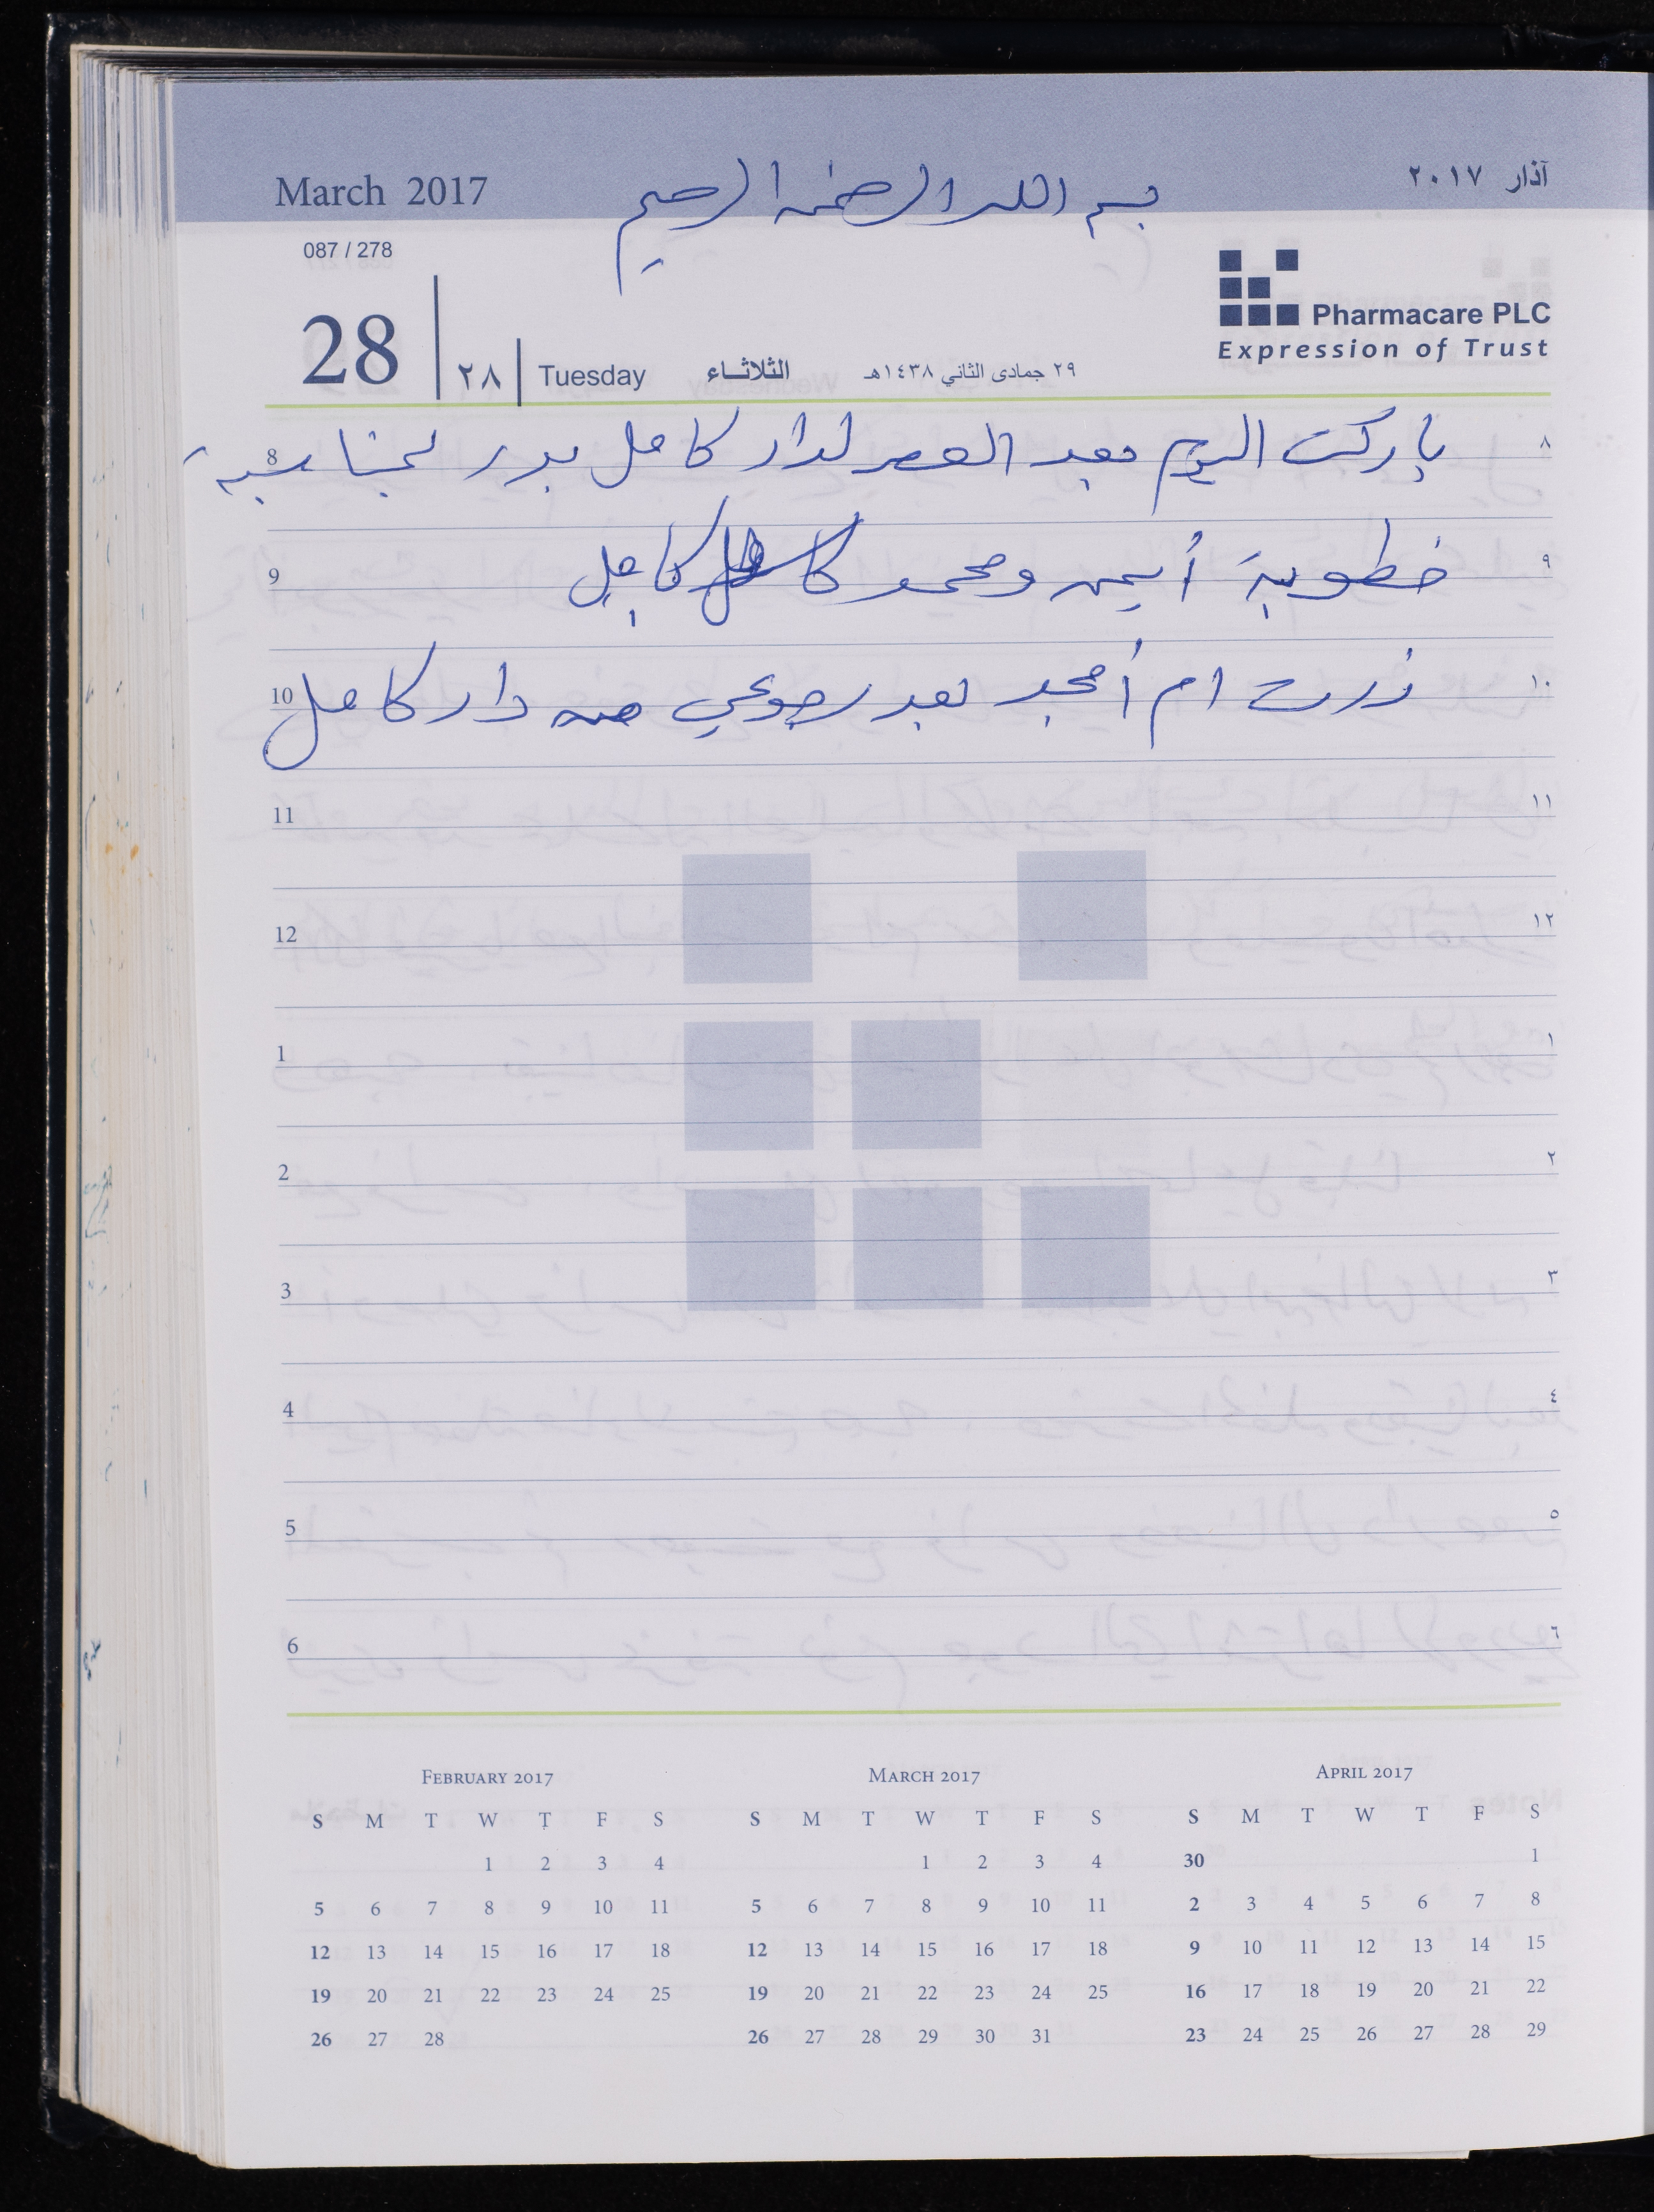 March 2017
بسم الله الرحمن الرحيم
آذار ٢٠١٧
087 / 278
Pharmacare PLC
Expression of Trust
28 ٢٨ Tuesday الثلاثـاء ٢٩ جمادى الثاني ١٤٣٨هـ
8 باركت اليوم بعد العصر لدار كامل بدر لمناسبة ٨
9 خطوبة أيمن ومحمد كامل ٩
10 زرت ام أمجد بعد رجوعي من دار كامل ١٠
11 ١١
12 ١٢
1 ١
2 ٢
3 ٣
4 ٤
5 ٥
6 ٦
FEBRUARY 2017
S M T W T F S
1 2 3 4
5 6 7 8 9 10 11
12 13 14 15 16 17 18
19 20 21 22 23 24 25
26 27 28
MARCH 2017
S M T W T F S
1 2 3 4
5 6 7 8 9 10 11
12 13 14 15 16 17 18
19 20 21 22 23 24 25
26 27 28 29 30 31
APRIL 2017
S M T W T F S
30 1
2 3 4 5 6 7 8
9 10 11 12 13 14 15
16 17 18 19 20 21 22
23 24 25 26 27 28 29